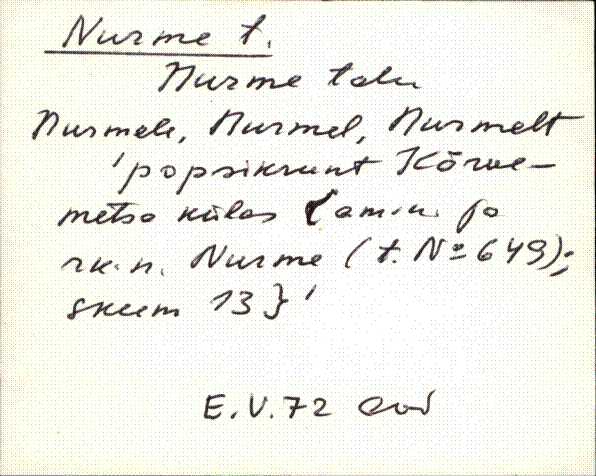 Nurme t.
Nurme talu
Nurmele, Nurmel, Nurmelt
'popsikrunt Kõrve-
metsa külas (amin. ja
rk. n. Nurme (t. № 649);
skeem 13}'
E.V.72